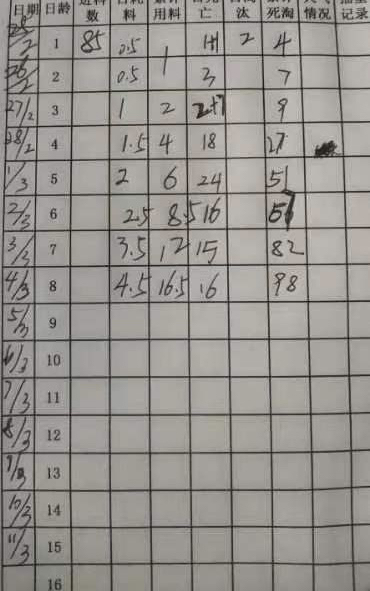 日期 日龄 数 料 用料 亡 汰 死淘 情况 记录
25/2 1 85 0.5 1+1 2 4
26/2 2 0.5 1 3 7
27/2 3 1 2 9
28/2 4 1.5 4 18 27
1/3 5 2 6 24 51
2/3 6 2.5 8.5 16
3/3 7 3.5 12 15 82
4/3 8 4.5 16.5 16 98
5/3 9
6/3 10
7/3 11
8/3 12
9/3 13
10/3 14
11/3 15
16